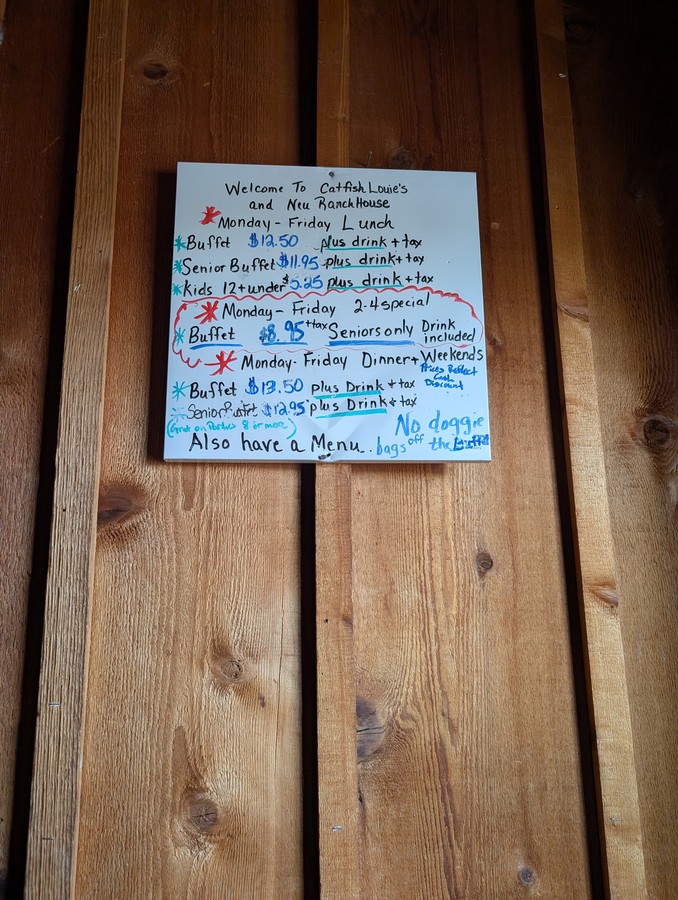 Welcome To Catfish Louie's
and New Ranch House
Monday - Friday Lunch
Buffet $12.50 plus drink + tax
Senior Buffet $11.95 plus drink + tax
Kids 12 + under $5.25 plus drink + tax
Monday - Friday 2-4 special
Buffet $8.95 + tax Seniors only Drink included
Monday - Friday Dinner + Weekends
Prices Reflect
Cash
Discount
Buffet $13.50 plus Drink + tax
Senior Buffet $12.95 plus Drink + tax
(Grat on Partys 8 or more)
No doggie
Also have a Menu. bags off the Buffet